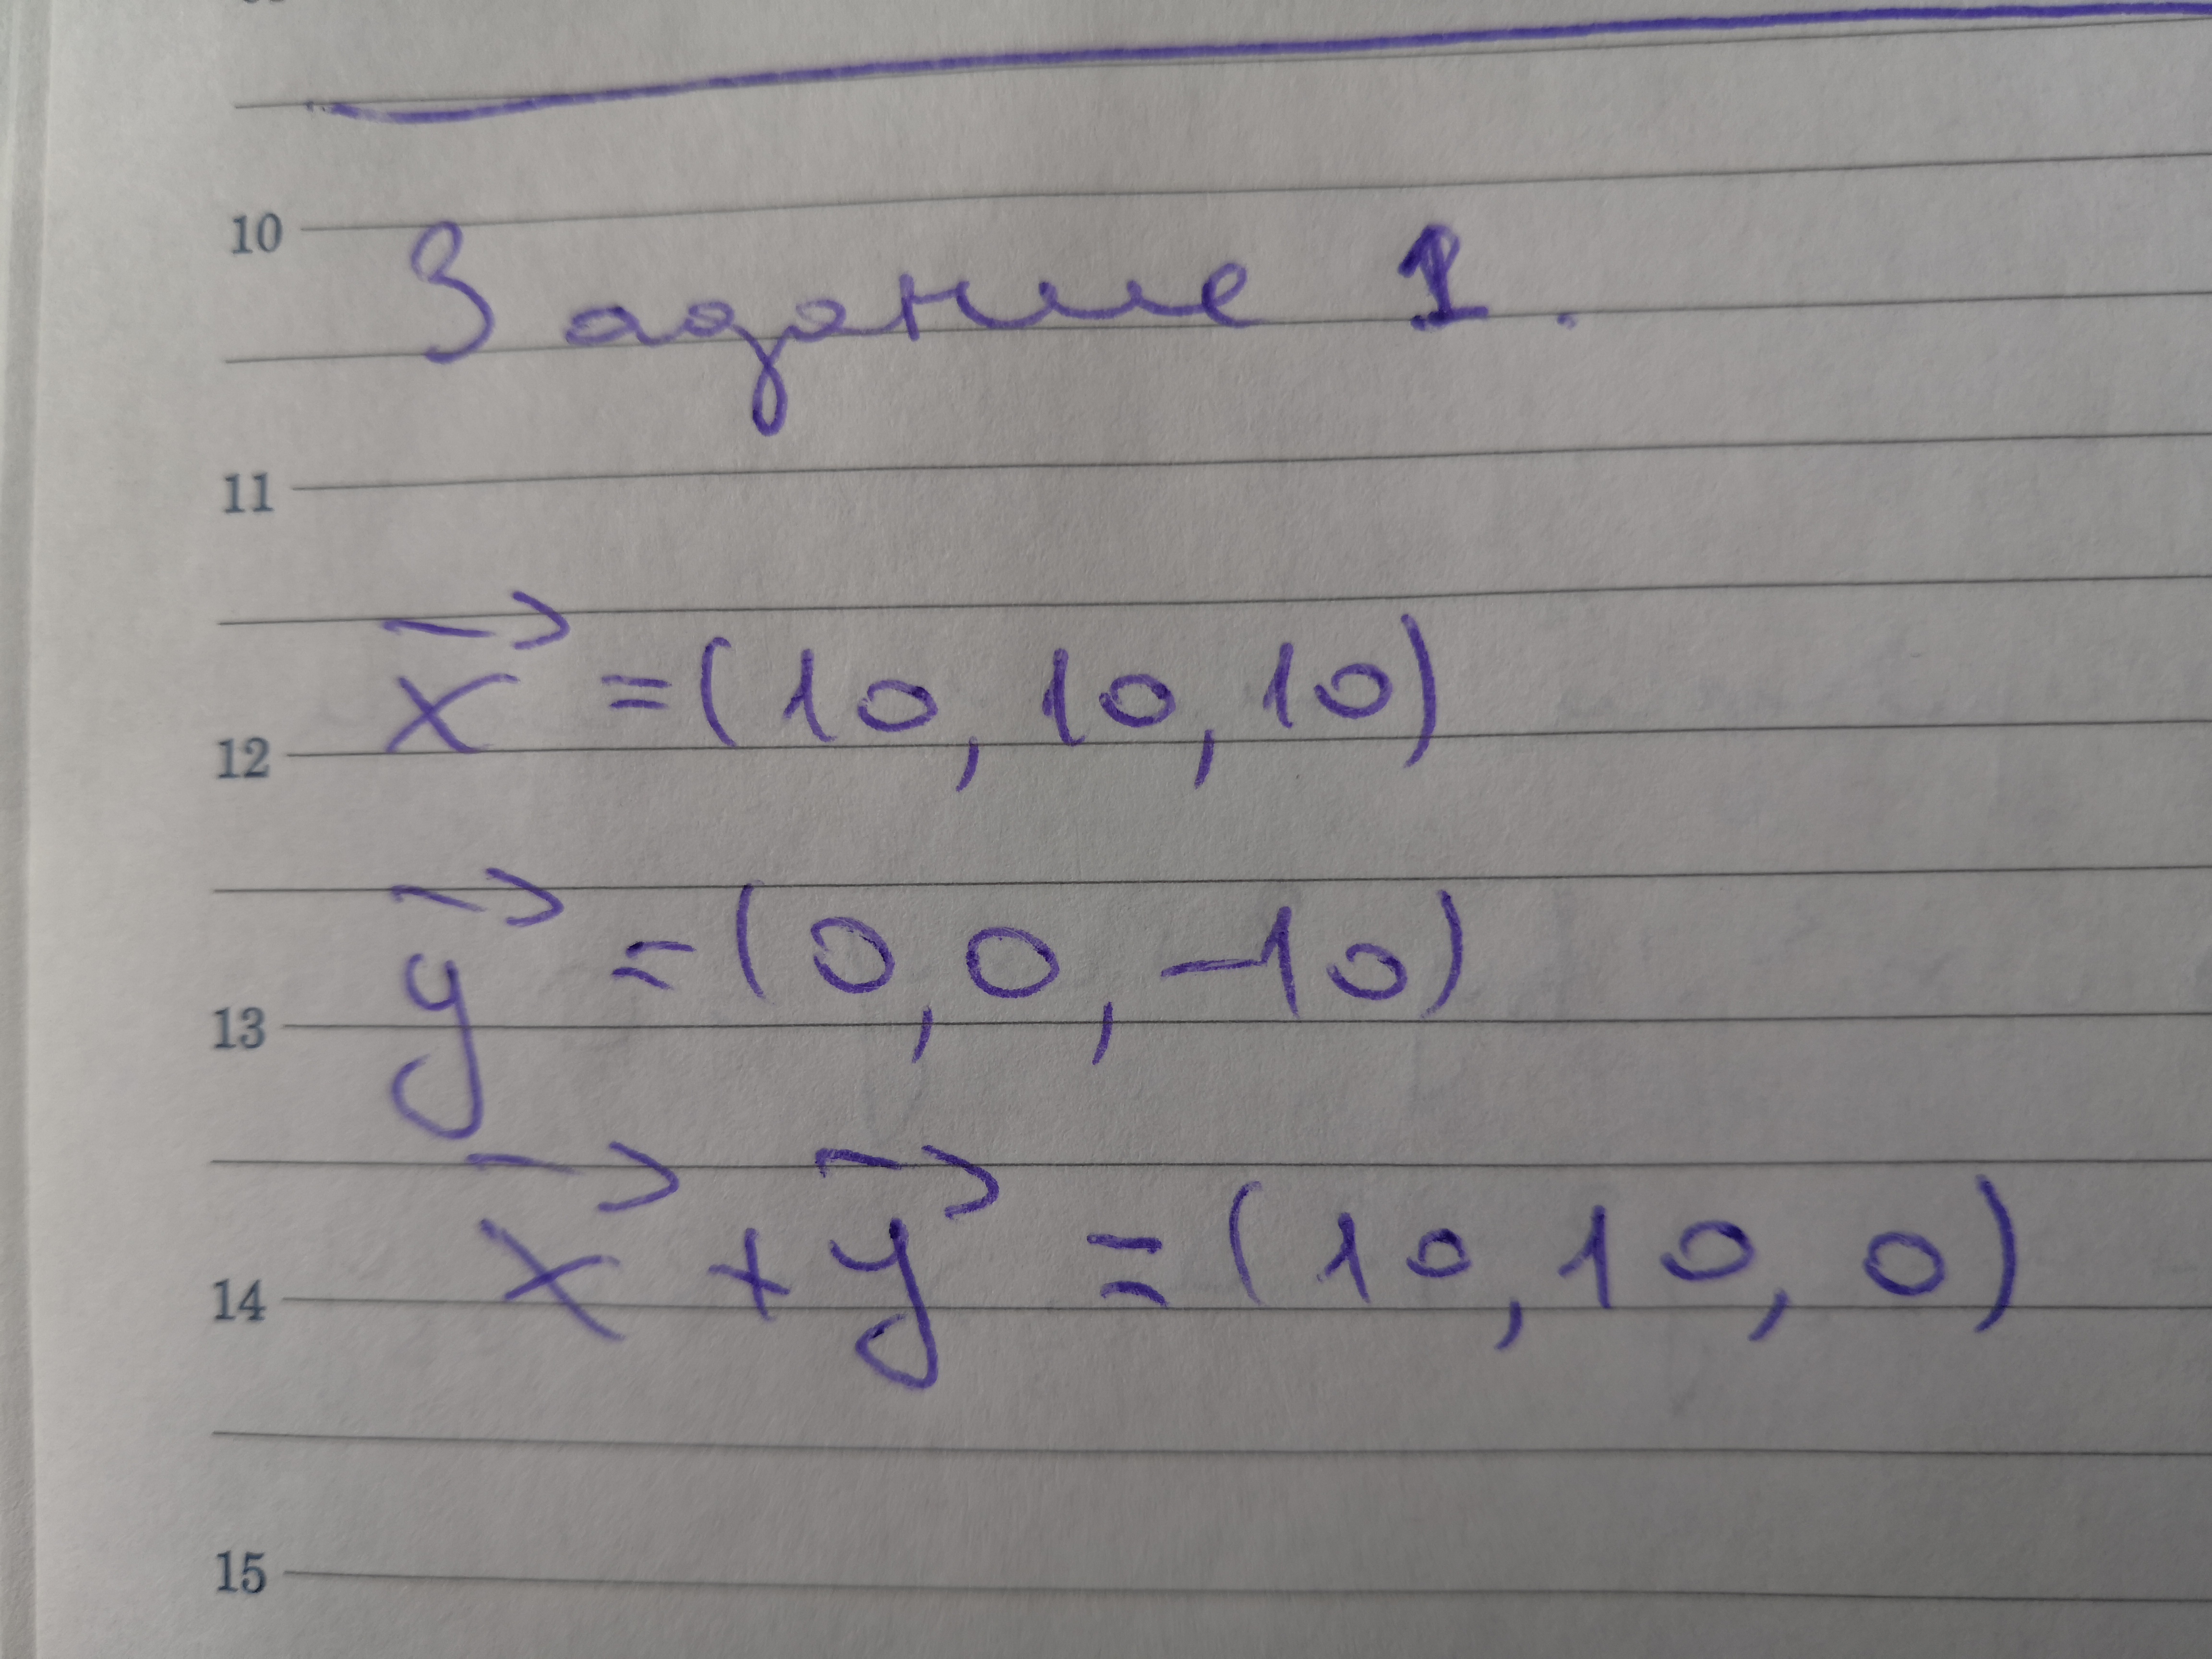 10
Задание 1.
11
x⃗ = (10, 10, 10)
12
y⃗ = (0, 0, -10)
13
x⃗ + y⃗ = (10, 10, 0)
14
15